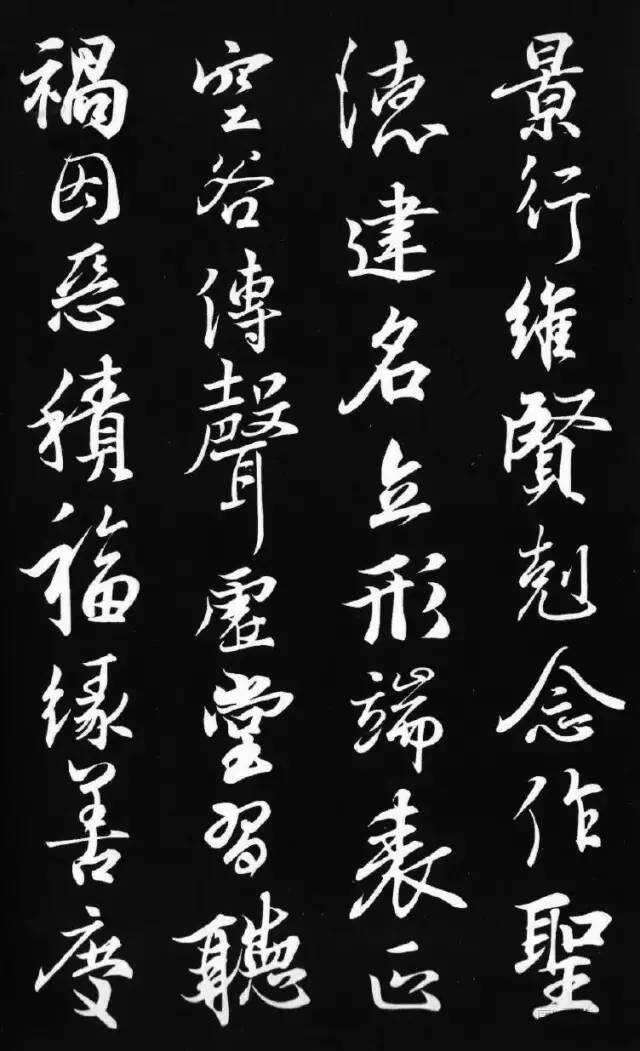 景行維賢剋念作聖
德建名立形端表正
空谷傳聲虛堂習聽
禍因惡積福緣善慶